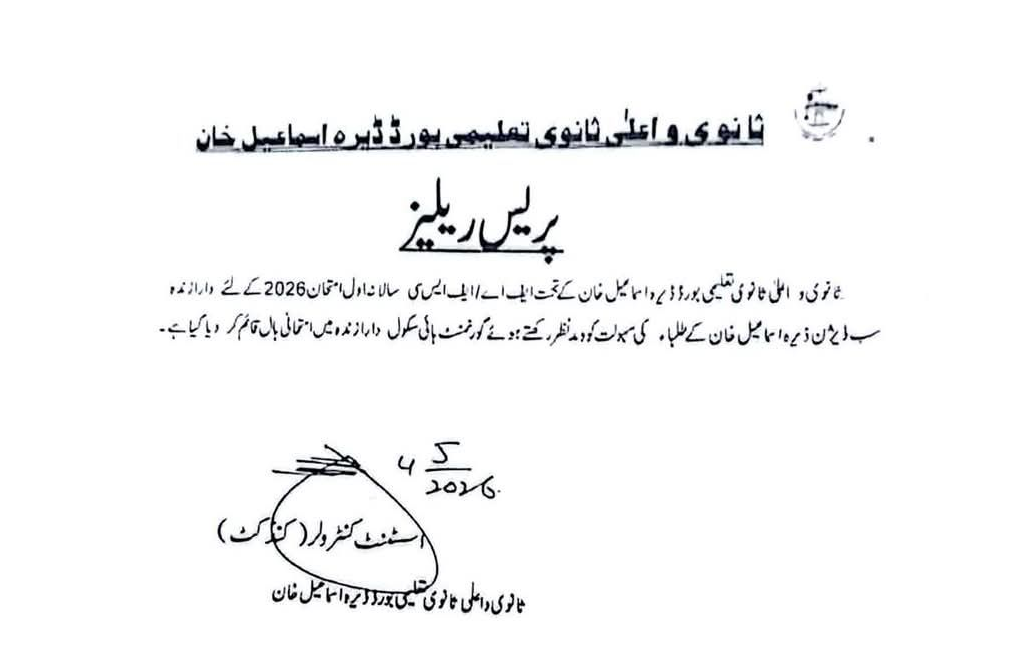 ثانوی و اعلٰی ثانوی تعلیمی بورڈ ڈیرہ اسماعیل خان
پریس ریلیز
ثانوی و اعلیٰ ثانوی تعلیمی بورڈ ڈیرہ اسماعیل خان کے تحت ایف اے/ایف ایس سی سالانہ اول امتحان 2026 کے لئے دارازندہ
سب ڈیژن ڈیرہ اسماعیل خان کے طلباء کی سہولت کو مدنظر رکھتے ہوئے گورنمنٹ ہائی سکول دارازندہ میں امتحانی ہال قائم کر دیا گیا ہے۔
4 5
2026
اسسٹنٹ کنٹرولر (کنڈکٹ)
ثانوی و اعلی ثانوی تعلیمی بورڈ ڈیرہ اسماعیل خان